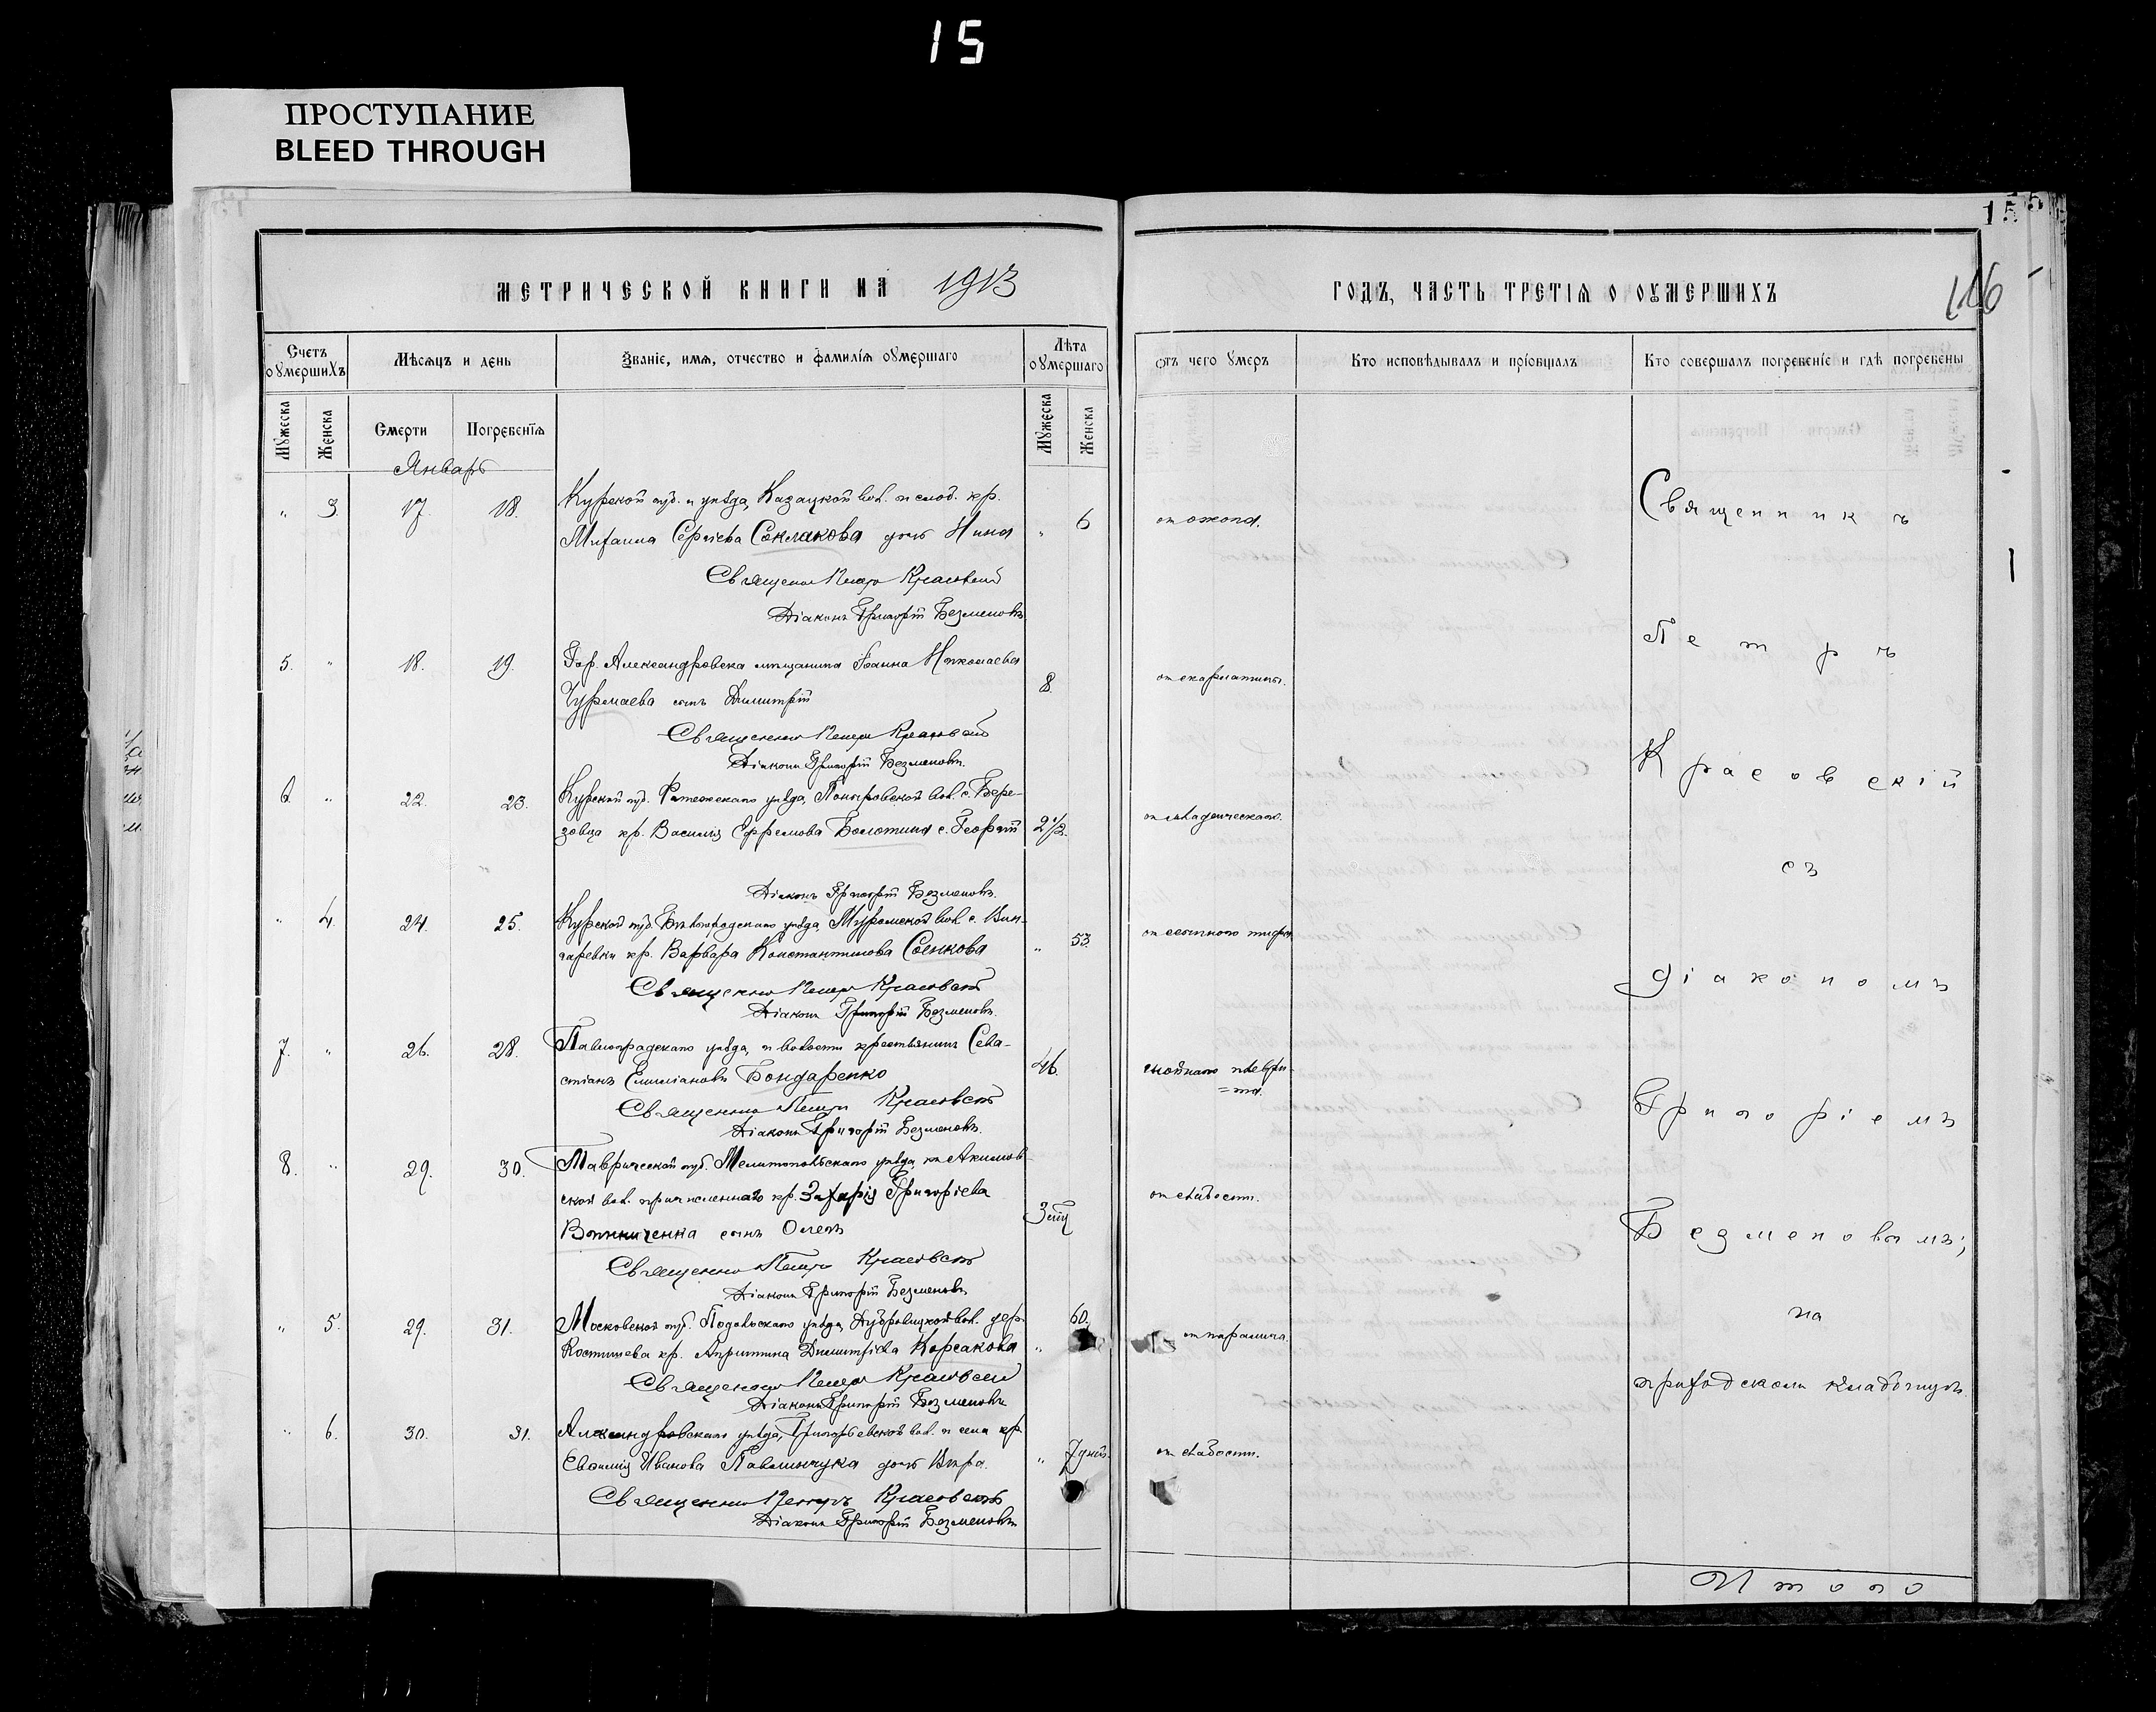 15
ПРОСТУПАНИЕ
BLEED THROUGH
155
116
МЕТРИЧЕСКОЙ КНИГИ НА 1913 ГОДЪ, ЧАСТЬ ТРЕТІЯ О ОУМЕРШИХЪ
Счетъ оумершихъ
Мѣсяцъ и день
Званіе, имя, отчество и фамилія оумершаго
Лѣта оумершаго
Отъ чего умеръ
Кто исповѣдывалъ и пріобщалъ
Кто совершалъ погребеніе и гдѣ погребены
Мужеска Женска Смерти Погребенія Мужеска Женска
Январь
" 3. 17. 18. Курской губ. и уѣзда, Казацкой вол. и слоб. кр. " 6 от ожога.
Михаила Сергіева Соклакова дочь Нина
Священникъ Петръ Красовскій
Діаконъ Григорій Безменовъ
5. " 18. 19. Гор. Александровска мѣщанина Іоанна Николаева 8. от скарлатины.
Чурмаева сынъ Димитрій
Священникъ Петръ Красовскій
Діаконъ Григорій Безменовъ.
6. " 22. 23. Курской губ. Фатежскаго уѣзда, Поныровской вол. с. Бере-
зовца кр. Василія Ефремова Болотина с. Георгій 2 1/2. от младенческаго.
Діаконъ Григорій Безменовъ.
" 4. 24. 25. Курской губ. Бѣлгородскаго уѣзда, Муромской вол. с.
кр. Варвара Константинова Соенкова " 53. от сыпного тифа
Священникъ Петръ Красовскій
Діаконъ Григорій Безменовъ.
7. " 26. 28. Павлоградскаго уѣзда, и волости крестьянинъ Сева-
стіанъ Емиліановъ Бондаренко 46. гнойнаго плеври-
=та.
Священникъ Петръ Красовскій
Діаконъ Григорій Безменовъ.
8. " 29. 30. Таврической губ. Мелитопольскаго уѣзда, къ Акимов-
ской вол. причисленнаго кр. Захарія Григорьева от слабости.
сынъ Олегъ
Священникъ Петръ Красовскій
Діаконъ Григорій Безменовъ
" 5. 29. 31. Московской губ. Подольскаго уѣзда, Дубровицкой вол. дер. 60.
кр. Димитріева Корсакова " от паралича.
Священникъ Петръ Красовскій
Діаконъ Григорій Безменовъ
" 6. 30. 31. Александровскаго уѣзда, Григорьевской вол. и села кр.
Иванова Павлинчука дочь Вѣра. " 7 дней. от слабости.
Священникъ Петръ Красовскій
Діаконъ Григорій Безменовъ
Священникъ
Петръ
Красовскій
съ
діакономъ
Григоріемъ
Безменовымъ;
на
приходскомъ кладбищѣ.
Итого